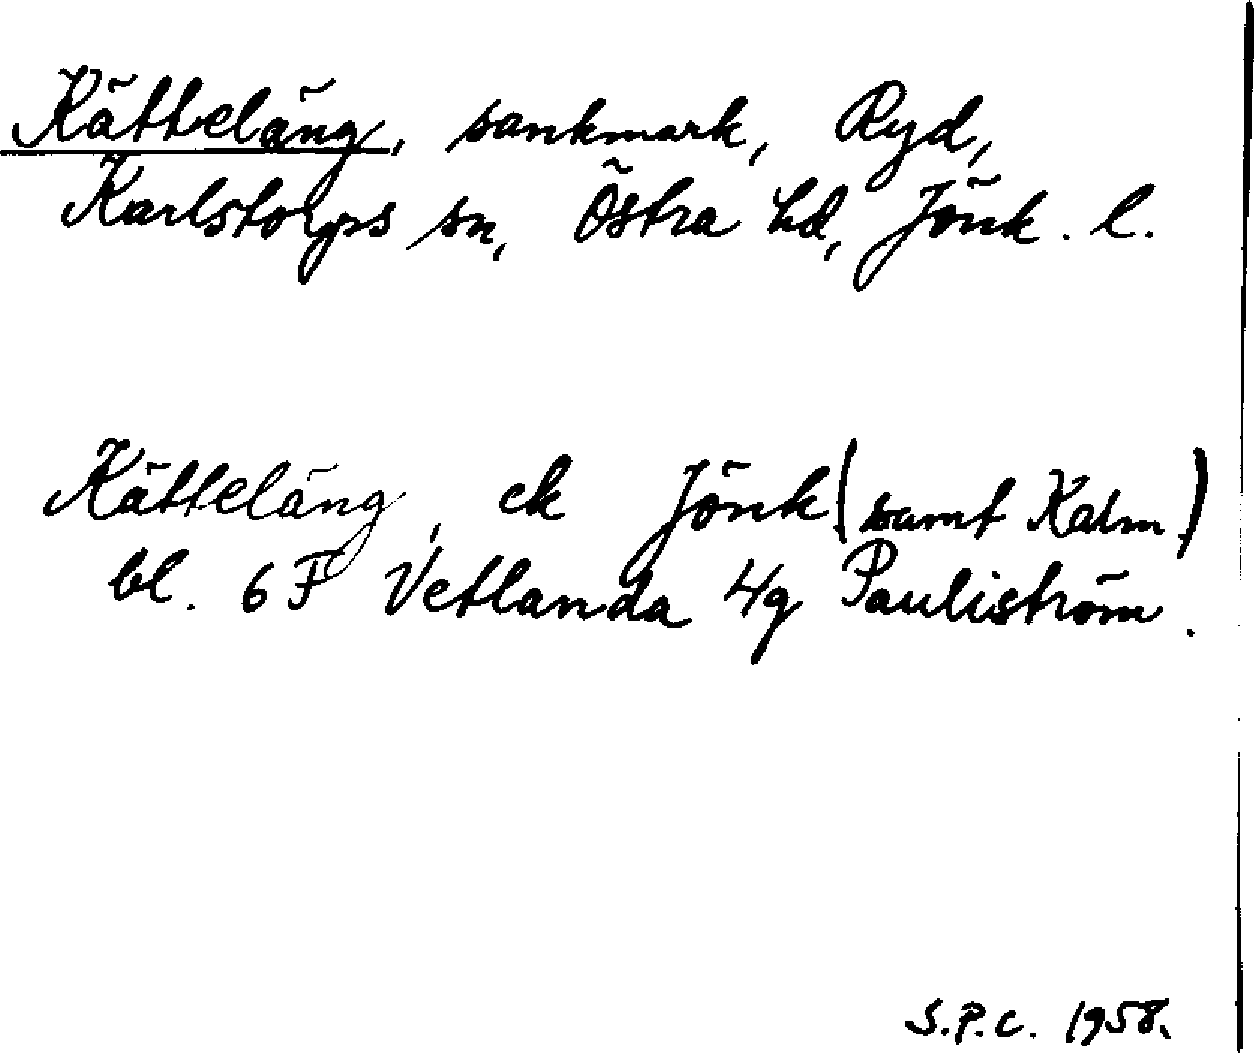 Kätteläng, sankmark, Ryd,
Karlstorps sn, Östra hd, Jönk. l.
Kätteläng, ek Jönk (samt Kalm)
bl. 6F Vetlanda 4g Pauliström.
S.P.C. 1958.